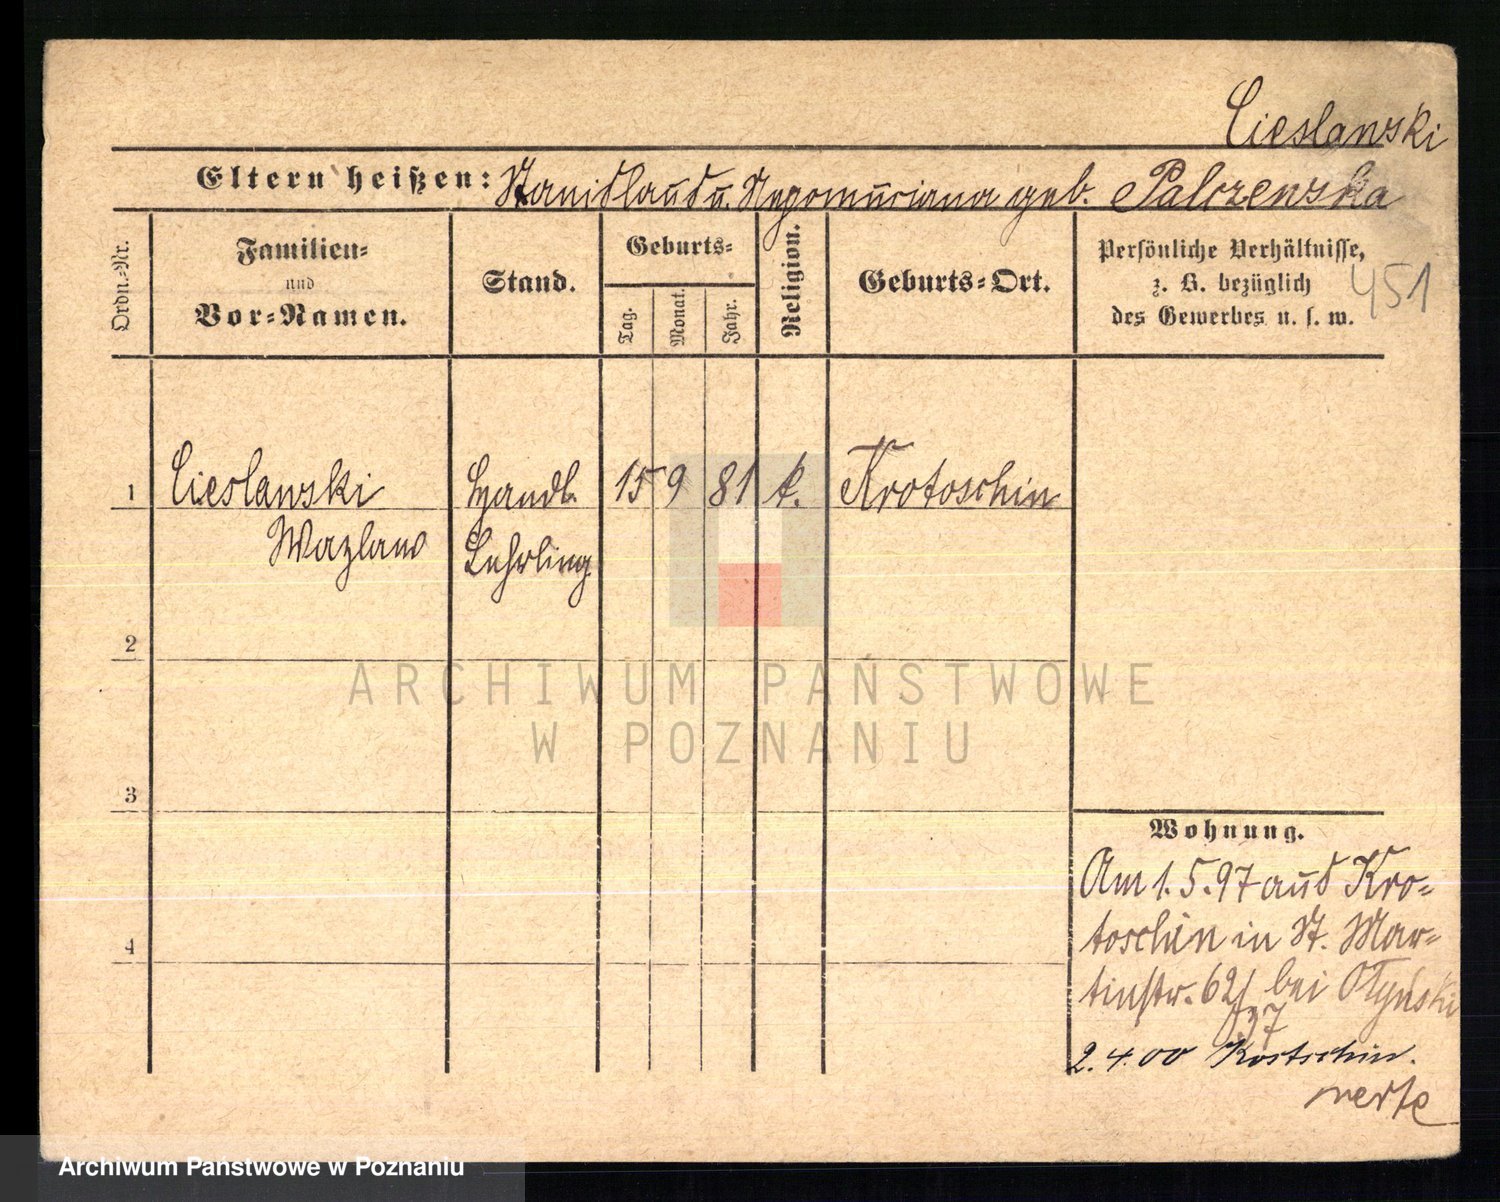 Cieslawski
Eltern heißen: Stanislaus u. Nepomuciana geb. Palczewska
Ordn.-Nr.
Familien-
und
Vor-Namen.
Stand.
Geburts-
Tag.
Monat.
Jahr.
Religion.
Geburts-Ort.
Persönliche Verhältnisse,
z. B. bezüglich
des Gewerbes u. s. w.
451
1 Cieslawski Handl. 15 9 81 k. Krotoschin
Wazlaw Lehrling
2
3
4
ARCHIWUM PAŃSTWOWE
W POZNANIU
Wohnung.
Am 1.5.97 aus Kro-
toschin in St. Mar-
tinstr. 62/ bei Olynski
37
2.4.00 Kostschin.
verte
Archiwum Państwowe w Poznaniu